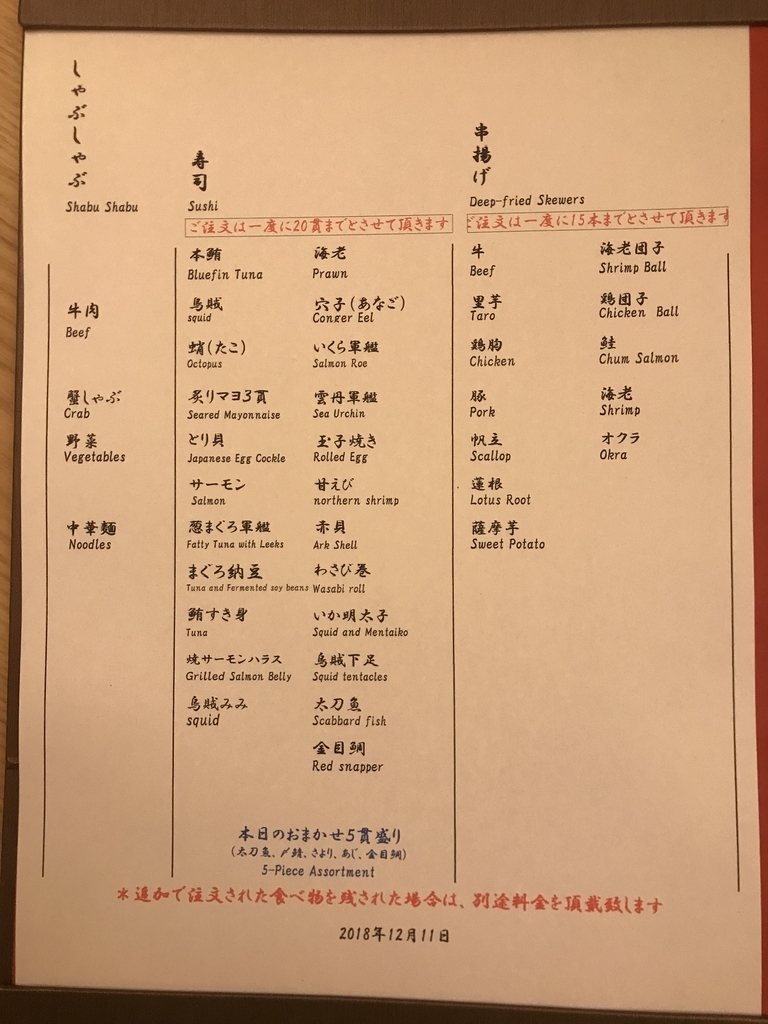 しゃぶしゃぶ
Shabu Shabu
牛肉
Beef
蟹しゃぶ
Crab
野菜
Vegetables
中華麺
Noodles
寿司
Sushi
ご注文は一度に20貫までとさせて頂きます
本鮪
Bluefin Tuna
烏賊
squid
蛸(たこ)
Octopus
炙りマヨ3貫
Seared Mayonnaise
とり貝
Japanese Egg Cockle
サーモン
Salmon
葱まぐろ軍艦
Fatty Tuna with Leeks
まぐろ納豆
Tuna and Fermented soy beans
鮪すき身
Tuna
焼サーモンハラス
Grilled Salmon Belly
烏賊みみ
squid
海老
Prawn
穴子(あなご)
Conger Eel
いくら軍艦
Salmon Roe
雲丹軍艦
Sea Urchin
玉子焼き
Rolled Egg
甘えび
northern shrimp
赤貝
Ark Shell
わさび巻
Wasabi roll
いか明太子
Squid and Mentaiko
烏賊下足
Squid tentacles
太刀魚
Scabbard fish
金目鯛
Red snapper
本日のおまかせ5貫盛り
(太刀魚、〆鯖、さより、あじ、金目鯛)
5-Piece Assortment
串揚げ
Deep-fried Skewers
ご注文は一度に15本までとさせて頂きます
牛
Beef
里芋
Taro
鶏胸
Chicken
豚
Pork
帆立
Scallop
蓮根
Lotus Root
薩摩芋
Sweet Potato
海老団子
Shrimp Ball
鶏団子
Chicken Ball
鮭
Chum Salmon
海老
Shrimp
オクラ
Okra
＊追加で注文された食べ物を残された場合は、別途料金を頂戴致します
2018年12月11日